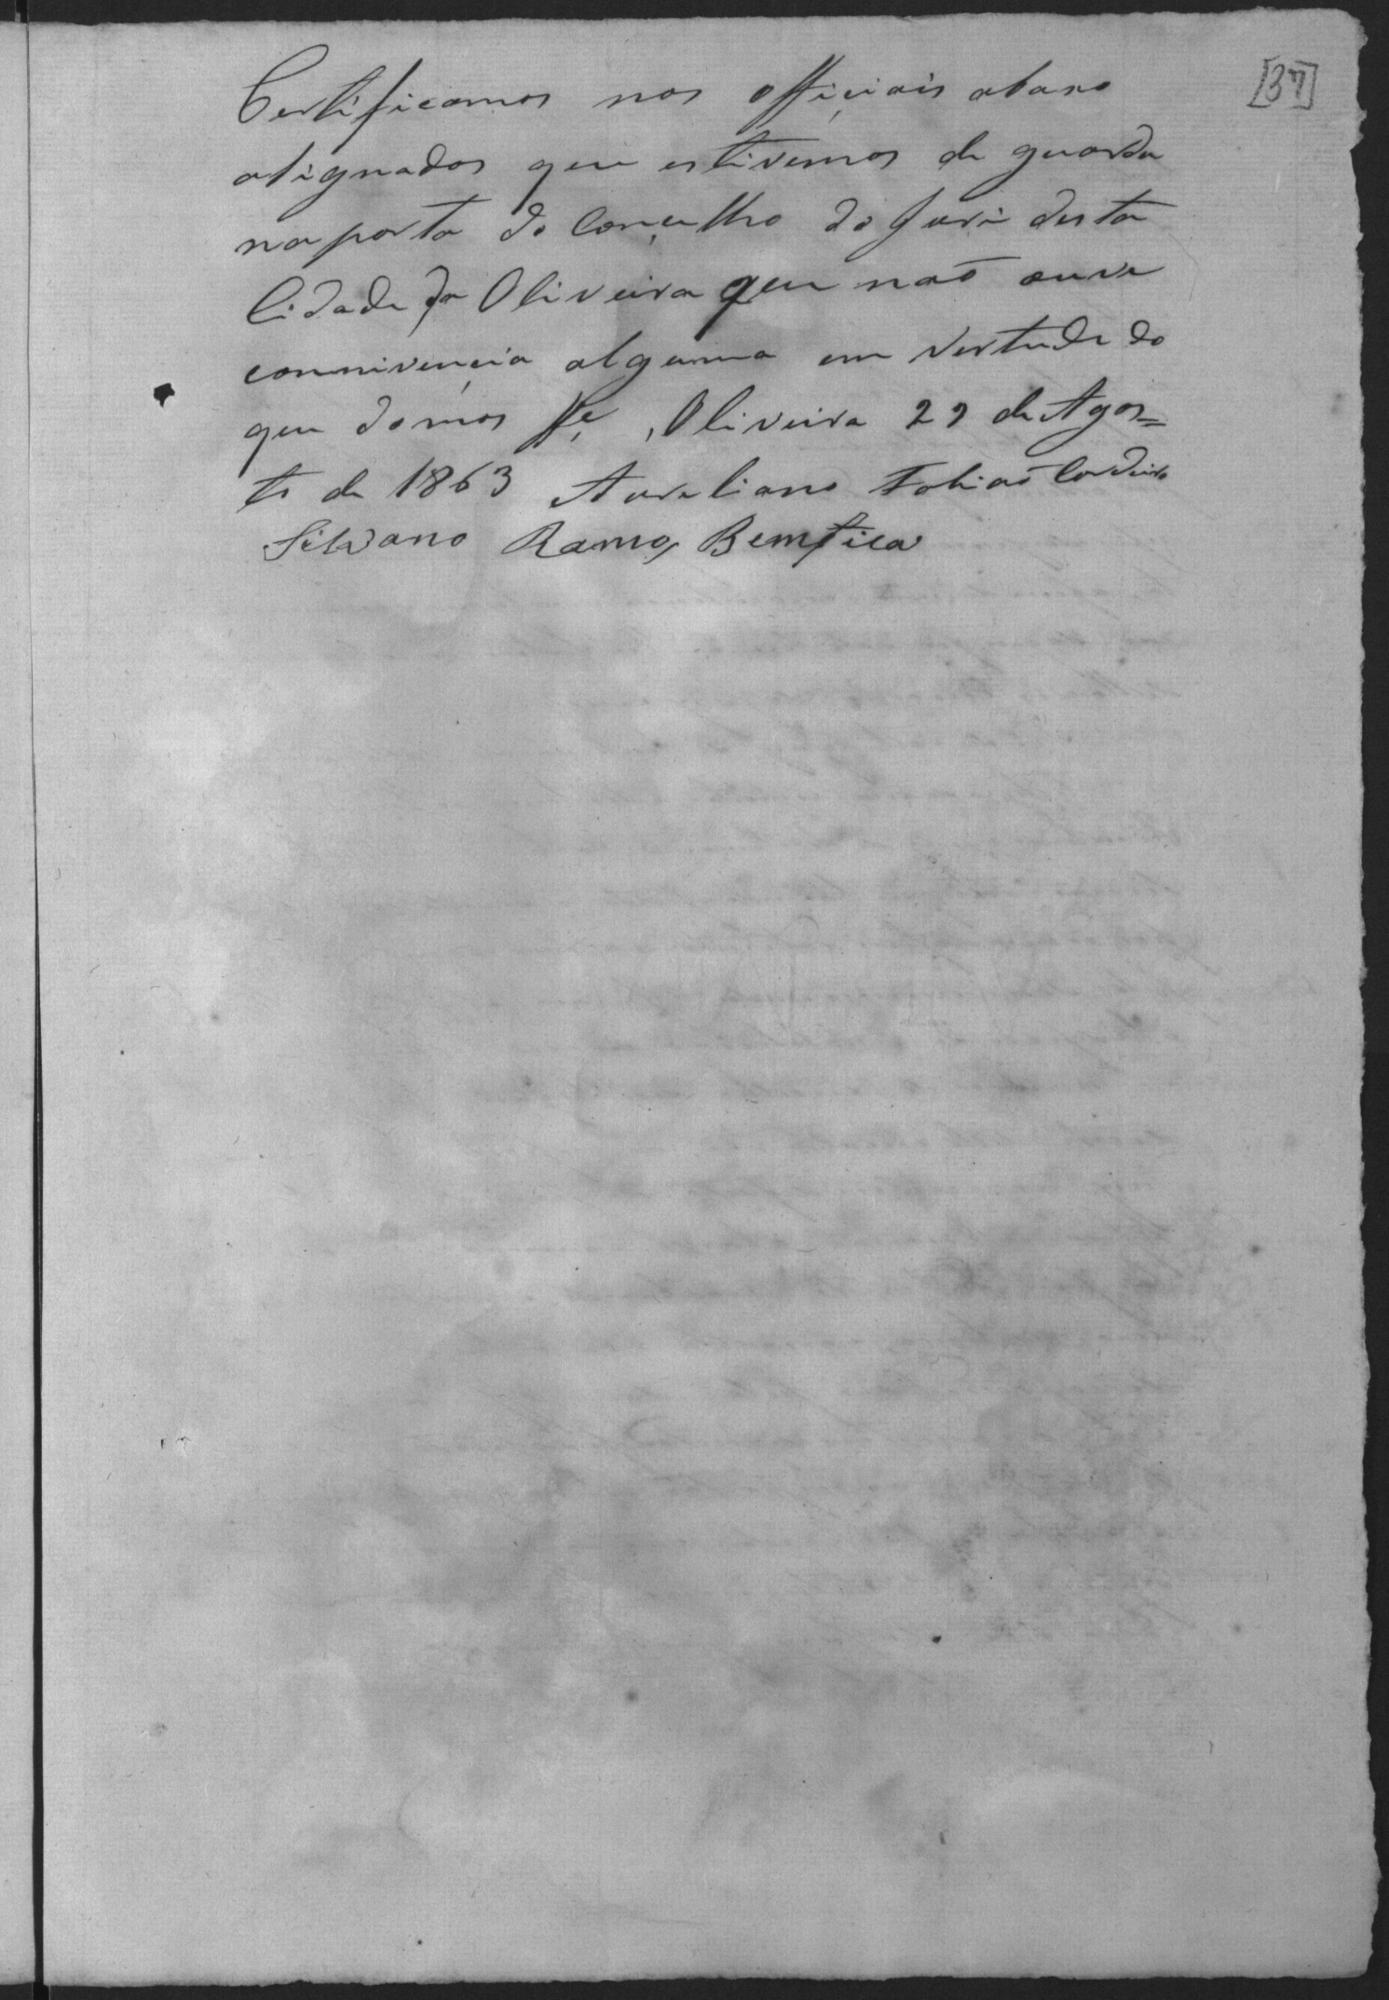 [37]
Certificamos nos officiais abaxo
asignados que estivemos de guarda
na porta do Conçelho do Juri desta
Cidade da Oliveira que naõ ouve
connivencia alguma em vertude do
que damos Fé, Oliveira 22 de Agos=
to de 1863 Aureliano Tobias Cordeiro
Silvano Ramos Bemfica